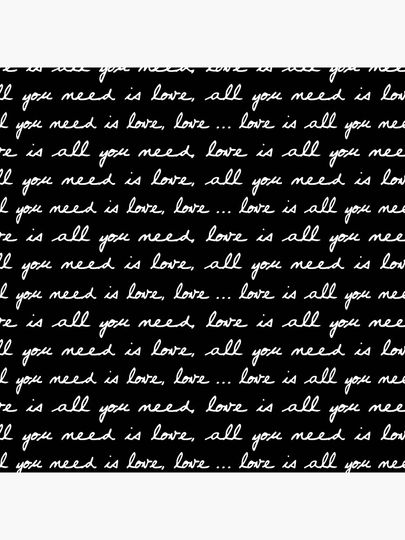 e is all you need, love is all you nee
ll you need is love, all you need is lov
l you need is love, love ... love is all you nee
e is all you need, love is all you nee
ll you need is love, all you need is lov
l you need is love, love ... love is all you nee
e is all you need, love is all you nee
ll you need is love, all you need is lov
l you need is love, love ... love is all you nee
e is all you need, love is all you nee
ll you need is love, all you need is lov
l you need is love, love ... love is all you nee
e is all you need, love is all you nee
ll you need is love, all you need is lov
l you need is love, love ... love is all you nee